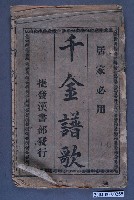 居家必用
千金譜歌
捷發漢書部發行